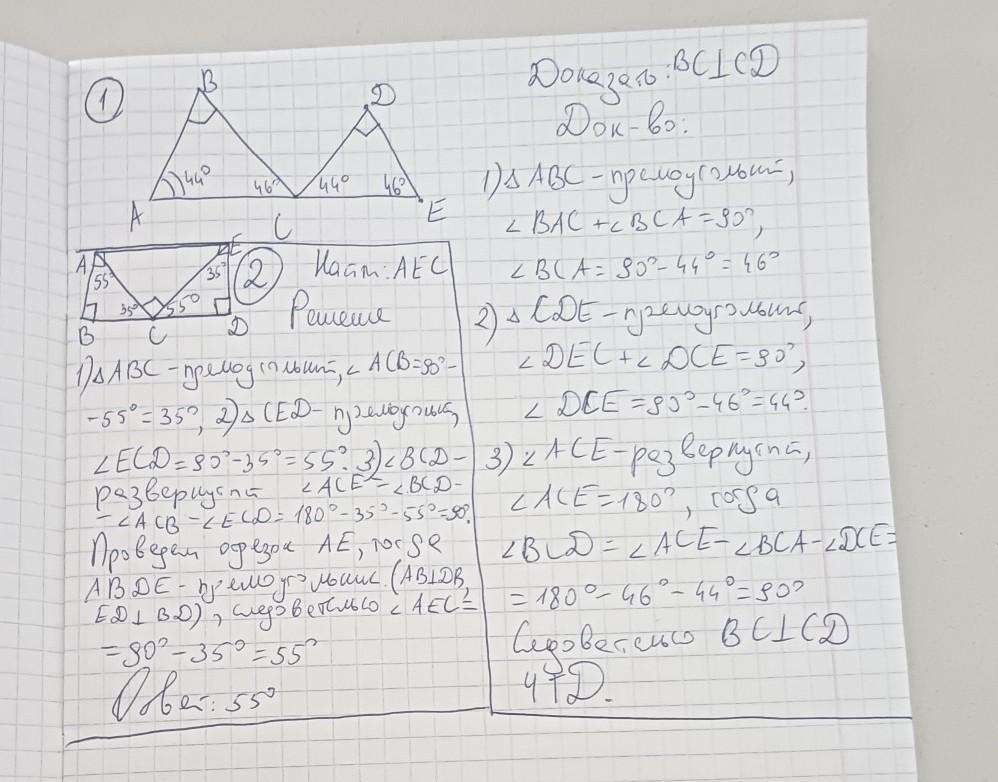 1
B
D
44°
46°
44°
46°
A
C
E
Доказать: BC⊥CD
Док-во:
1) △ ABC - прямоугольный,
∠ BAC + ∠ BCA = 90°,
∠ BCA = 90° - 44° = 46°
2) △ CDE - прямоугольный,
∠ DEC + ∠ DCE = 90°,
∠ DCE = 90° - 46° = 44°.
3) ∠ ACE - развернутый,
∠ ACE = 180°, тогда
∠ BCD = ∠ ACE - ∠ BCA - ∠ DCE =
= 180° - 46° - 44° = 90°
Следовательно BC⊥CD
ЧТД.
A
E
55°
35°
35°
55°
B
C
D
2
Найти: AEC
Решение
1) △ ABC - прямоугольный, ∠ ACB = 90° -
- 55° = 35°, 2) △ CED - прямоугольный,
∠ ECD = 90° - 35° = 55°. 3) ∠ BCD -
развернутый ∠ ACE = ∠ BCD -
- ∠ ACB - ∠ ECD = 180° - 35° - 55° = 90°.
Проведем отрезок AE, тогда
ABDE - прямоугольник. (AB⊥DB,
ED⊥BD), следовательно ∠ AEC =
= 90° - 35° = 55°
Ответ: 55°